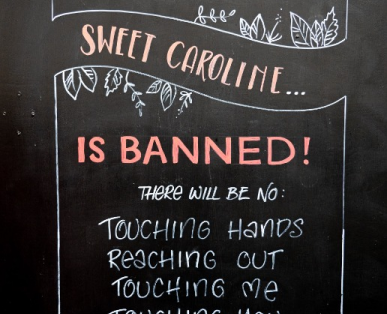 SWEET CAROLINE...
IS BANNED!
THERE WILL BE NO:
TOUCHING HANDS
REACHING OUT
TOUCHING ME
TOUCHING YOU